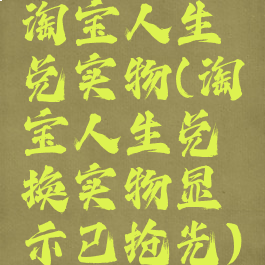 淘宝人生
兑实物(淘
宝人生兑
换实物显
示已抢光)